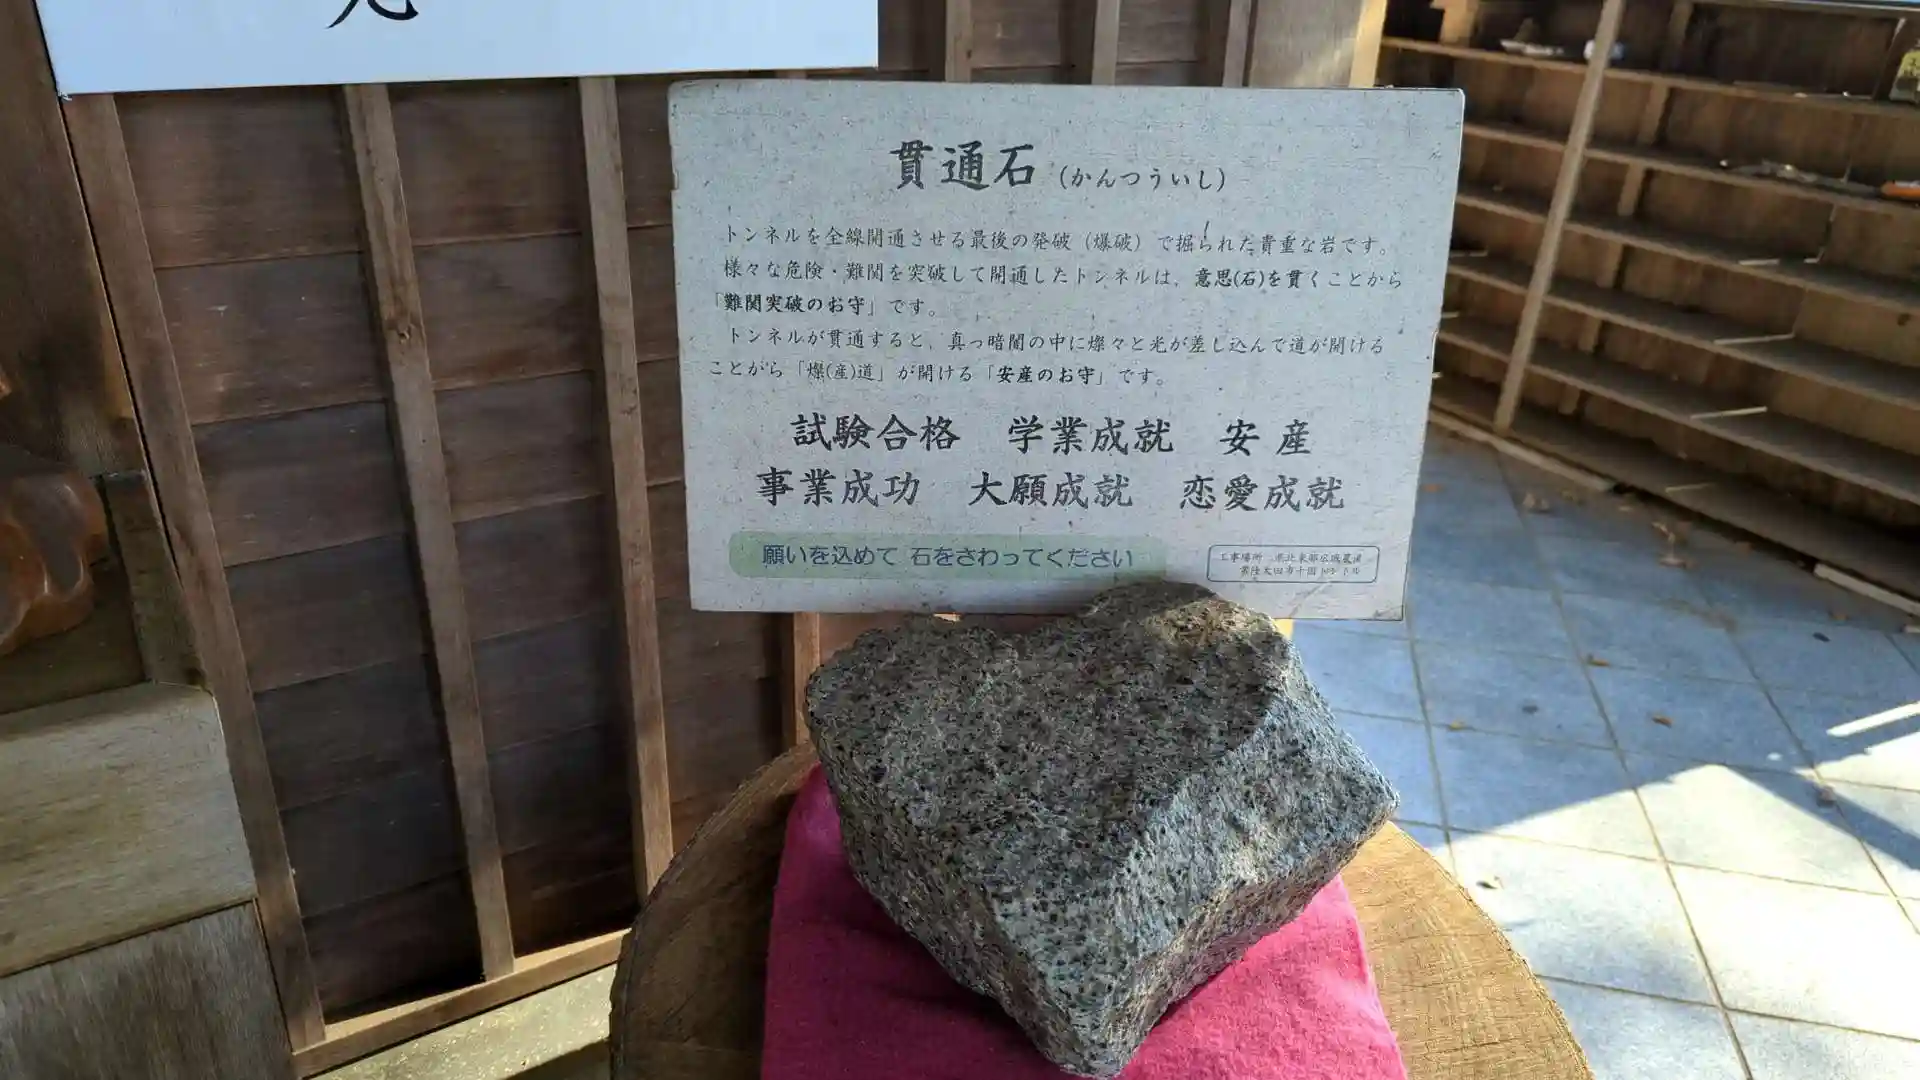 貫通石（かんつういし）
トンネルを全線開通させる最後の発破（爆破）で掘られた貴重な岩です。
様々な危険・難関を突破して開通したトンネルは、意思(石)を貫くことから
「難関突破のお守」です。
トンネルが貫通すると、真っ暗闇の中に燦々と光が差し込んで道が開ける
ことがら「燦(産)道」が開ける「安産のお守」です。
試験合格　学業成就　安産
事業成功　大願成就　恋愛成就
願いを込めて 石をさわってください
工事場所　県北東部広域農道
常陸太田市